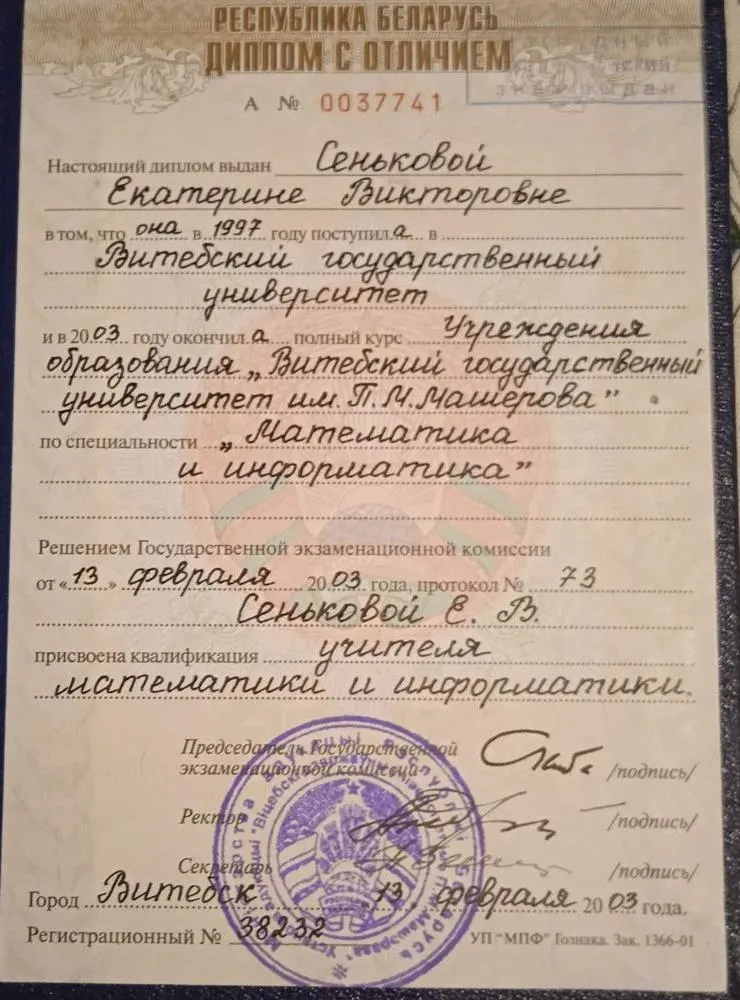 РЕСПУБЛИКА БЕЛАРУСЬ
ДИПЛОМ С ОТЛИЧИЕМ
А № 0037741
Настоящий диплом выдан Сеньковой
Екатерине Викторовне
в том, что она в 1997 году поступила в
Витебский государственный
университет
и в 2003 году окончила полный курс Учреждения
образования „Витебский государственный
университет им. П.М. Машерова”
по специальности „Математика
и информатика”
Решением Государственной экзаменационной комиссии
от «13» февраля 2003 года, протокол № 73
Сеньковой Е. В.
присвоена квалификация учителя
математики и информатики.
Председатель Государственной
экзаменационной комиссии /подпись/
Ректор /подпись/
Секретарь /подпись/
Город Витебск „13” февраля 2003 года.
Регистрационный № 38232
УП “МПФ” Гознака. Зак. 1366-01